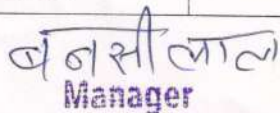 बनसी लाल
Manager